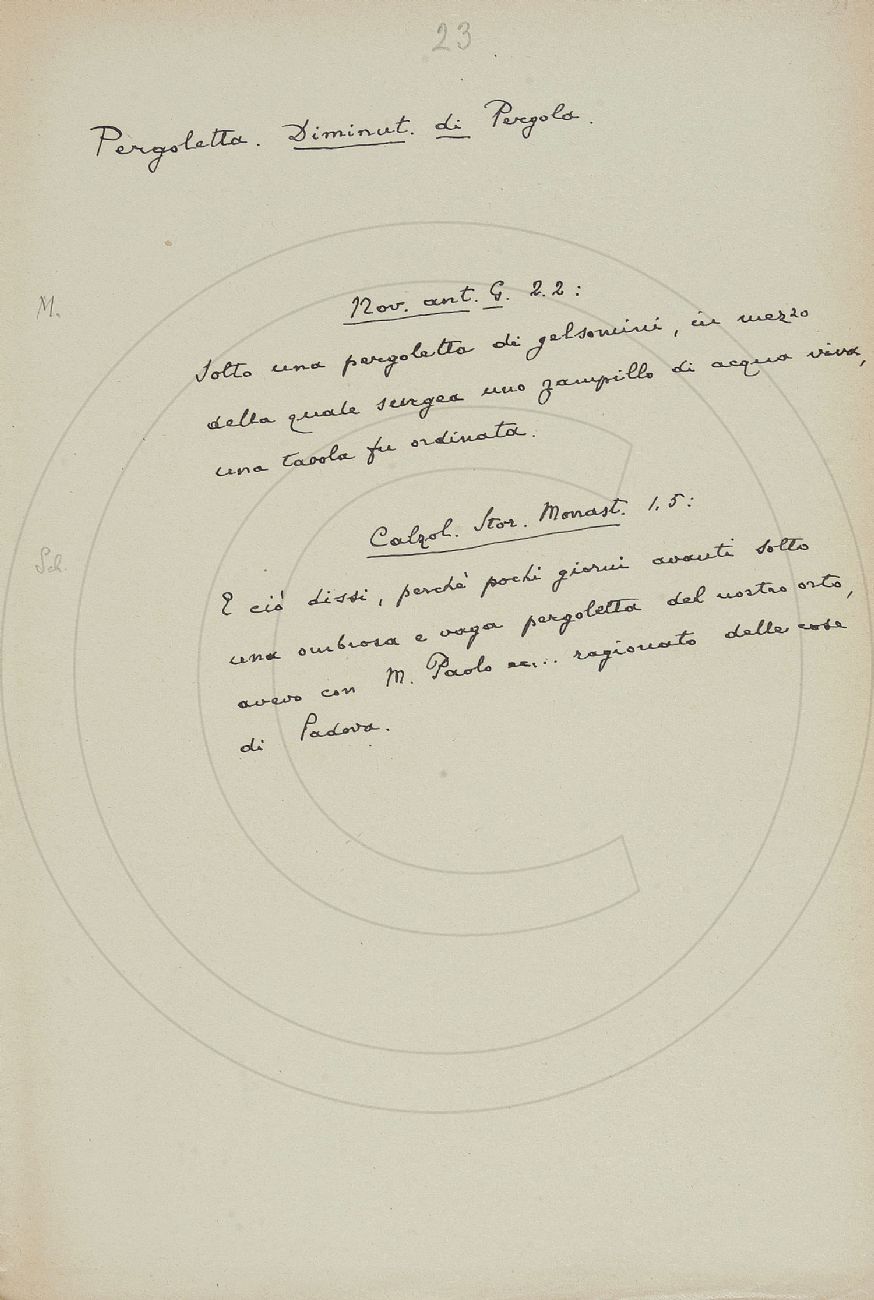 23
Pergoletta. Diminut. di Pergola.
M.
Nov. ant. G. 22:
Sotto una pergoletta di gelsomini, in mezzo
della quale surgea uno zampillo di acqua viva,
una tavola fu ordinata.
Calzol. Stor. Monast. 1. 5:
Sch.
E ciò dissi, perchè pochi giorni avanti sotto
una ombrosa e vaga pergoletta del nostro orto,
avevo con M. Paolo ec... ragionato delle cose
di Padova.